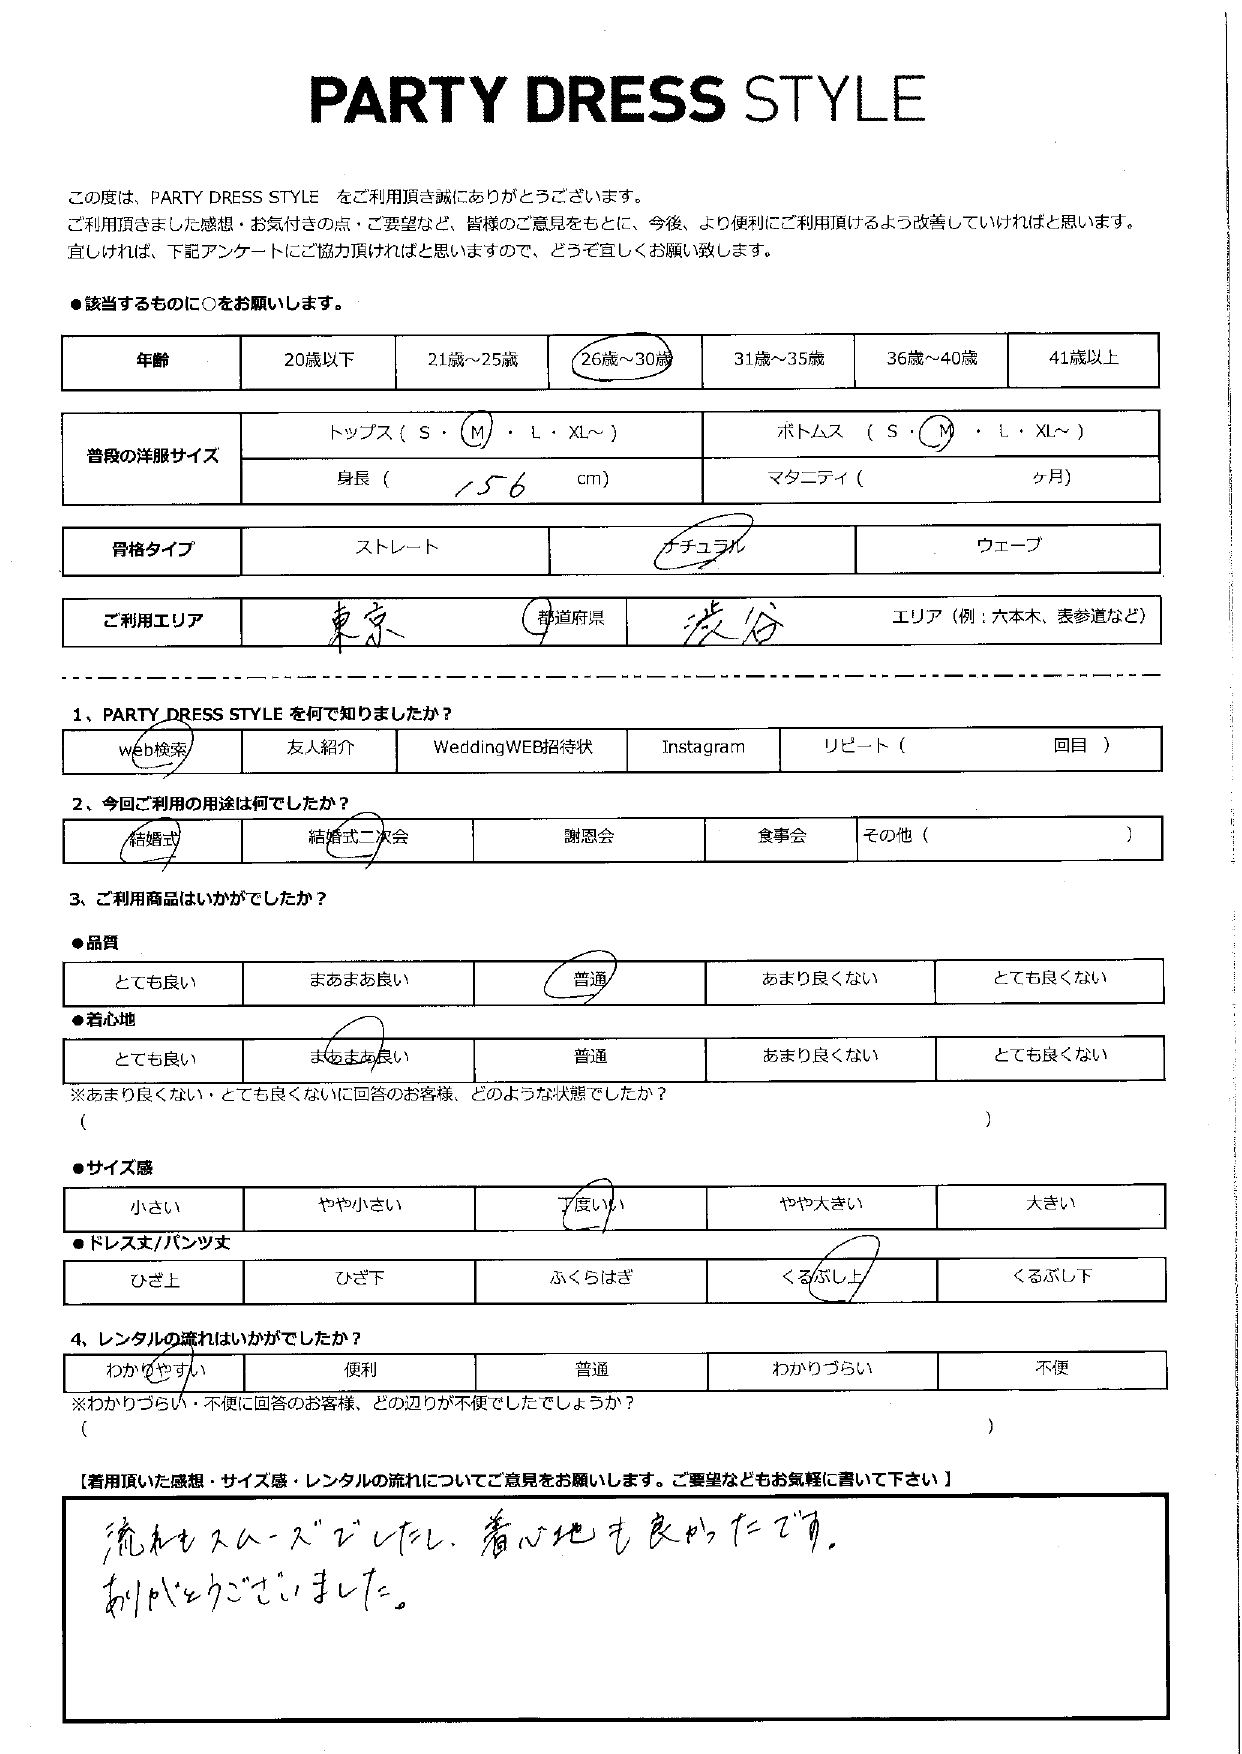 PARTY DRESS STYLE
この度は、PARTY DRESS STYLE をご利用頂き誠にありがとうございます。
ご利用頂きました感想・お気付きの点・ご要望など、皆様のご意見をもとに、今後、より便利にご利用頂けるよう改善していければと思います。
宜しければ、下記アンケートにご協力頂ければと思いますので、どうぞ宜しくお願い致します。
●該当するものに○をお願いします。
年齢 20歳以下 21歳～25歳 26歳～30歳 31歳～35歳 36歳～40歳 41歳以上
普段の洋服サイズ トップス ( S ・ M ・ L ・ XL～ ) ボトムス ( S ・ M ・ L ・ XL～ )
身長 ( 156 cm) マタニティ ( ヶ月)
骨格タイプ ストレート ナチュラル ウェーブ
ご利用エリア 東京 都道府県 渋谷 エリア（例：六本木、表参道など）
1、PARTY DRESS STYLE を何で知りましたか？
web検索 友人紹介 WeddingWEB招待状 Instagram リピート ( 回目 )
2、今回ご利用の用途は何でしたか？
結婚式 結婚式二次会 謝恩会 食事会 その他 ( )
3、ご利用商品はいかがでしたか？
●品質
とても良い まあまあ良い 普通 あまり良くない とても良くない
●着心地
とても良い まあまあ良い 普通 あまり良くない とても良くない
※あまり良くない・とても良くないに回答のお客様、どのような状態でしたか？
( )
●サイズ感
小さい やや小さい 丁度いい やや大きい 大きい
●ドレス丈/パンツ丈
ひざ上 ひざ下 ふくらはぎ くるぶし上 くるぶし下
4、レンタルの流れはいかがでしたか？
わかりやすい 便利 普通 わかりづらい 不便
※わかりづらい・不便に回答のお客様、どの辺りが不便でしたでしょうか？
( )
【着用頂いた感想・サイズ感・レンタルの流れについてご意見をお願いします。ご要望などもお気軽に書いて下さい 】
流れもスムーズでしたし、着心地も良かったです。
ありがとうございました。